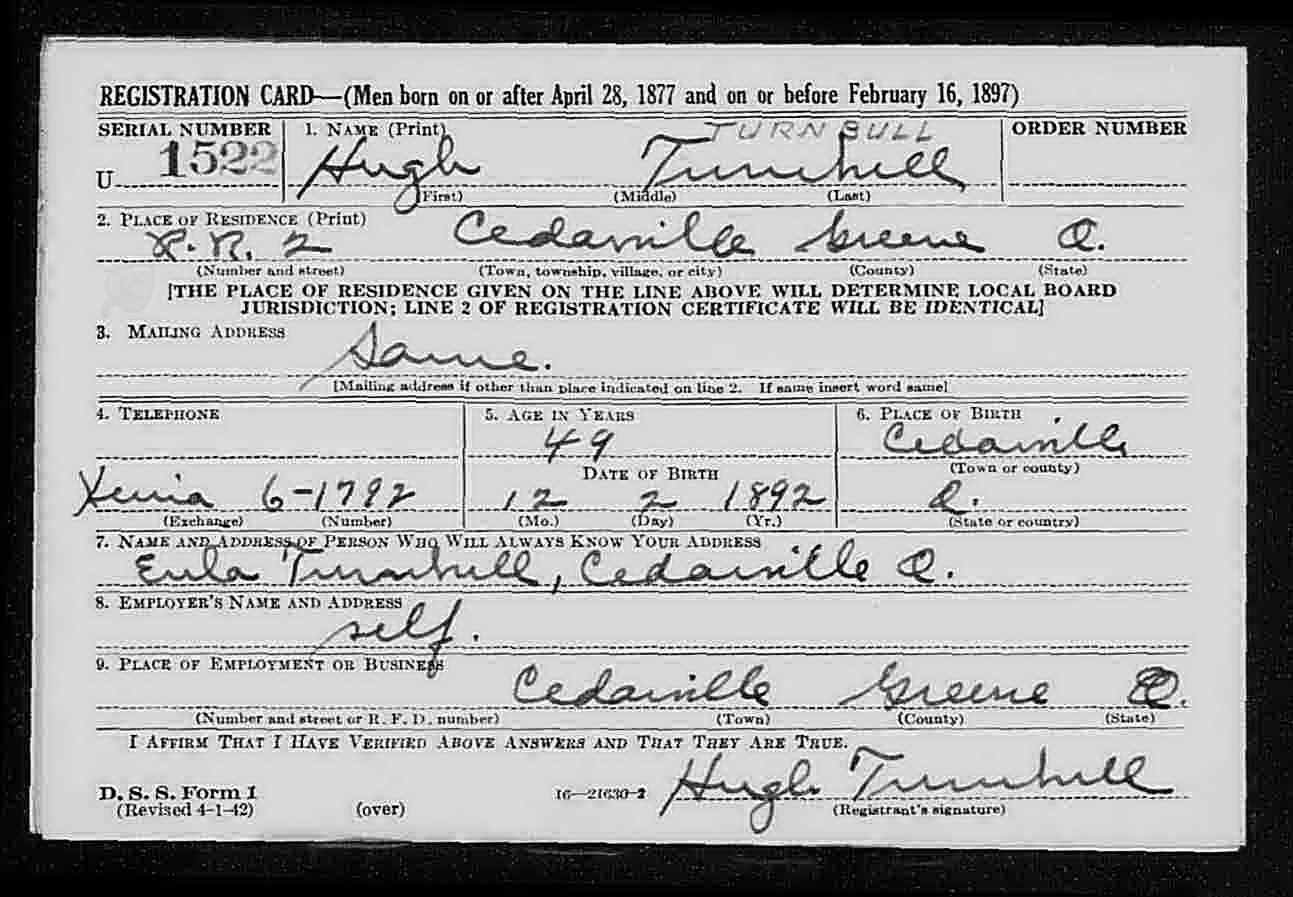 REGISTRATION CARD—(Men born on or after April 28, 1877 and on or before February 16, 1897)
SERIAL NUMBER 1. NAME (Print) TURNBULL ORDER NUMBER
U 1522 Hugh Turnbull
(First) (Middle) (Last)
2. PLACE OF RESIDENCE (Print)
R.R. 2 Cedarville Greene O.
(Number and street) (Town, township, village, or city) (County) (State)
[THE PLACE OF RESIDENCE GIVEN ON THE LINE ABOVE WILL DETERMINE LOCAL BOARD
JURISDICTION; LINE 2 OF REGISTRATION CERTIFICATE WILL BE IDENTICAL]
3. MAILING ADDRESS
Same.
[Mailing address if other than place indicated on line 2. If same insert word same]
4. TELEPHONE 5. AGE IN YEARS 6. PLACE OF BIRTH
49 Cedarville
DATE OF BIRTH (Town or county)
Xenia 6-1792 12 2 1892 O.
(Exchange) (Number) (Mo.) (Day) (Yr.) (State or country)
7. NAME AND ADDRESS OF PERSON WHO WILL ALWAYS KNOW YOUR ADDRESS
Eula Turnbull, Cedarville O.
8. EMPLOYER'S NAME AND ADDRESS
self.
9. PLACE OF EMPLOYMENT OR BUSINESS
Cedarville Greene O.
(Number and street or R. F. D. number) (Town) (County) (State)
I AFFIRM THAT I HAVE VERIFIED ABOVE ANSWERS AND THAT THEY ARE TRUE.
Hugh Turnbull
D. S. S. Form 1 16—21630-2
(Revised 4-1-42) (over) (Registrant's signature)